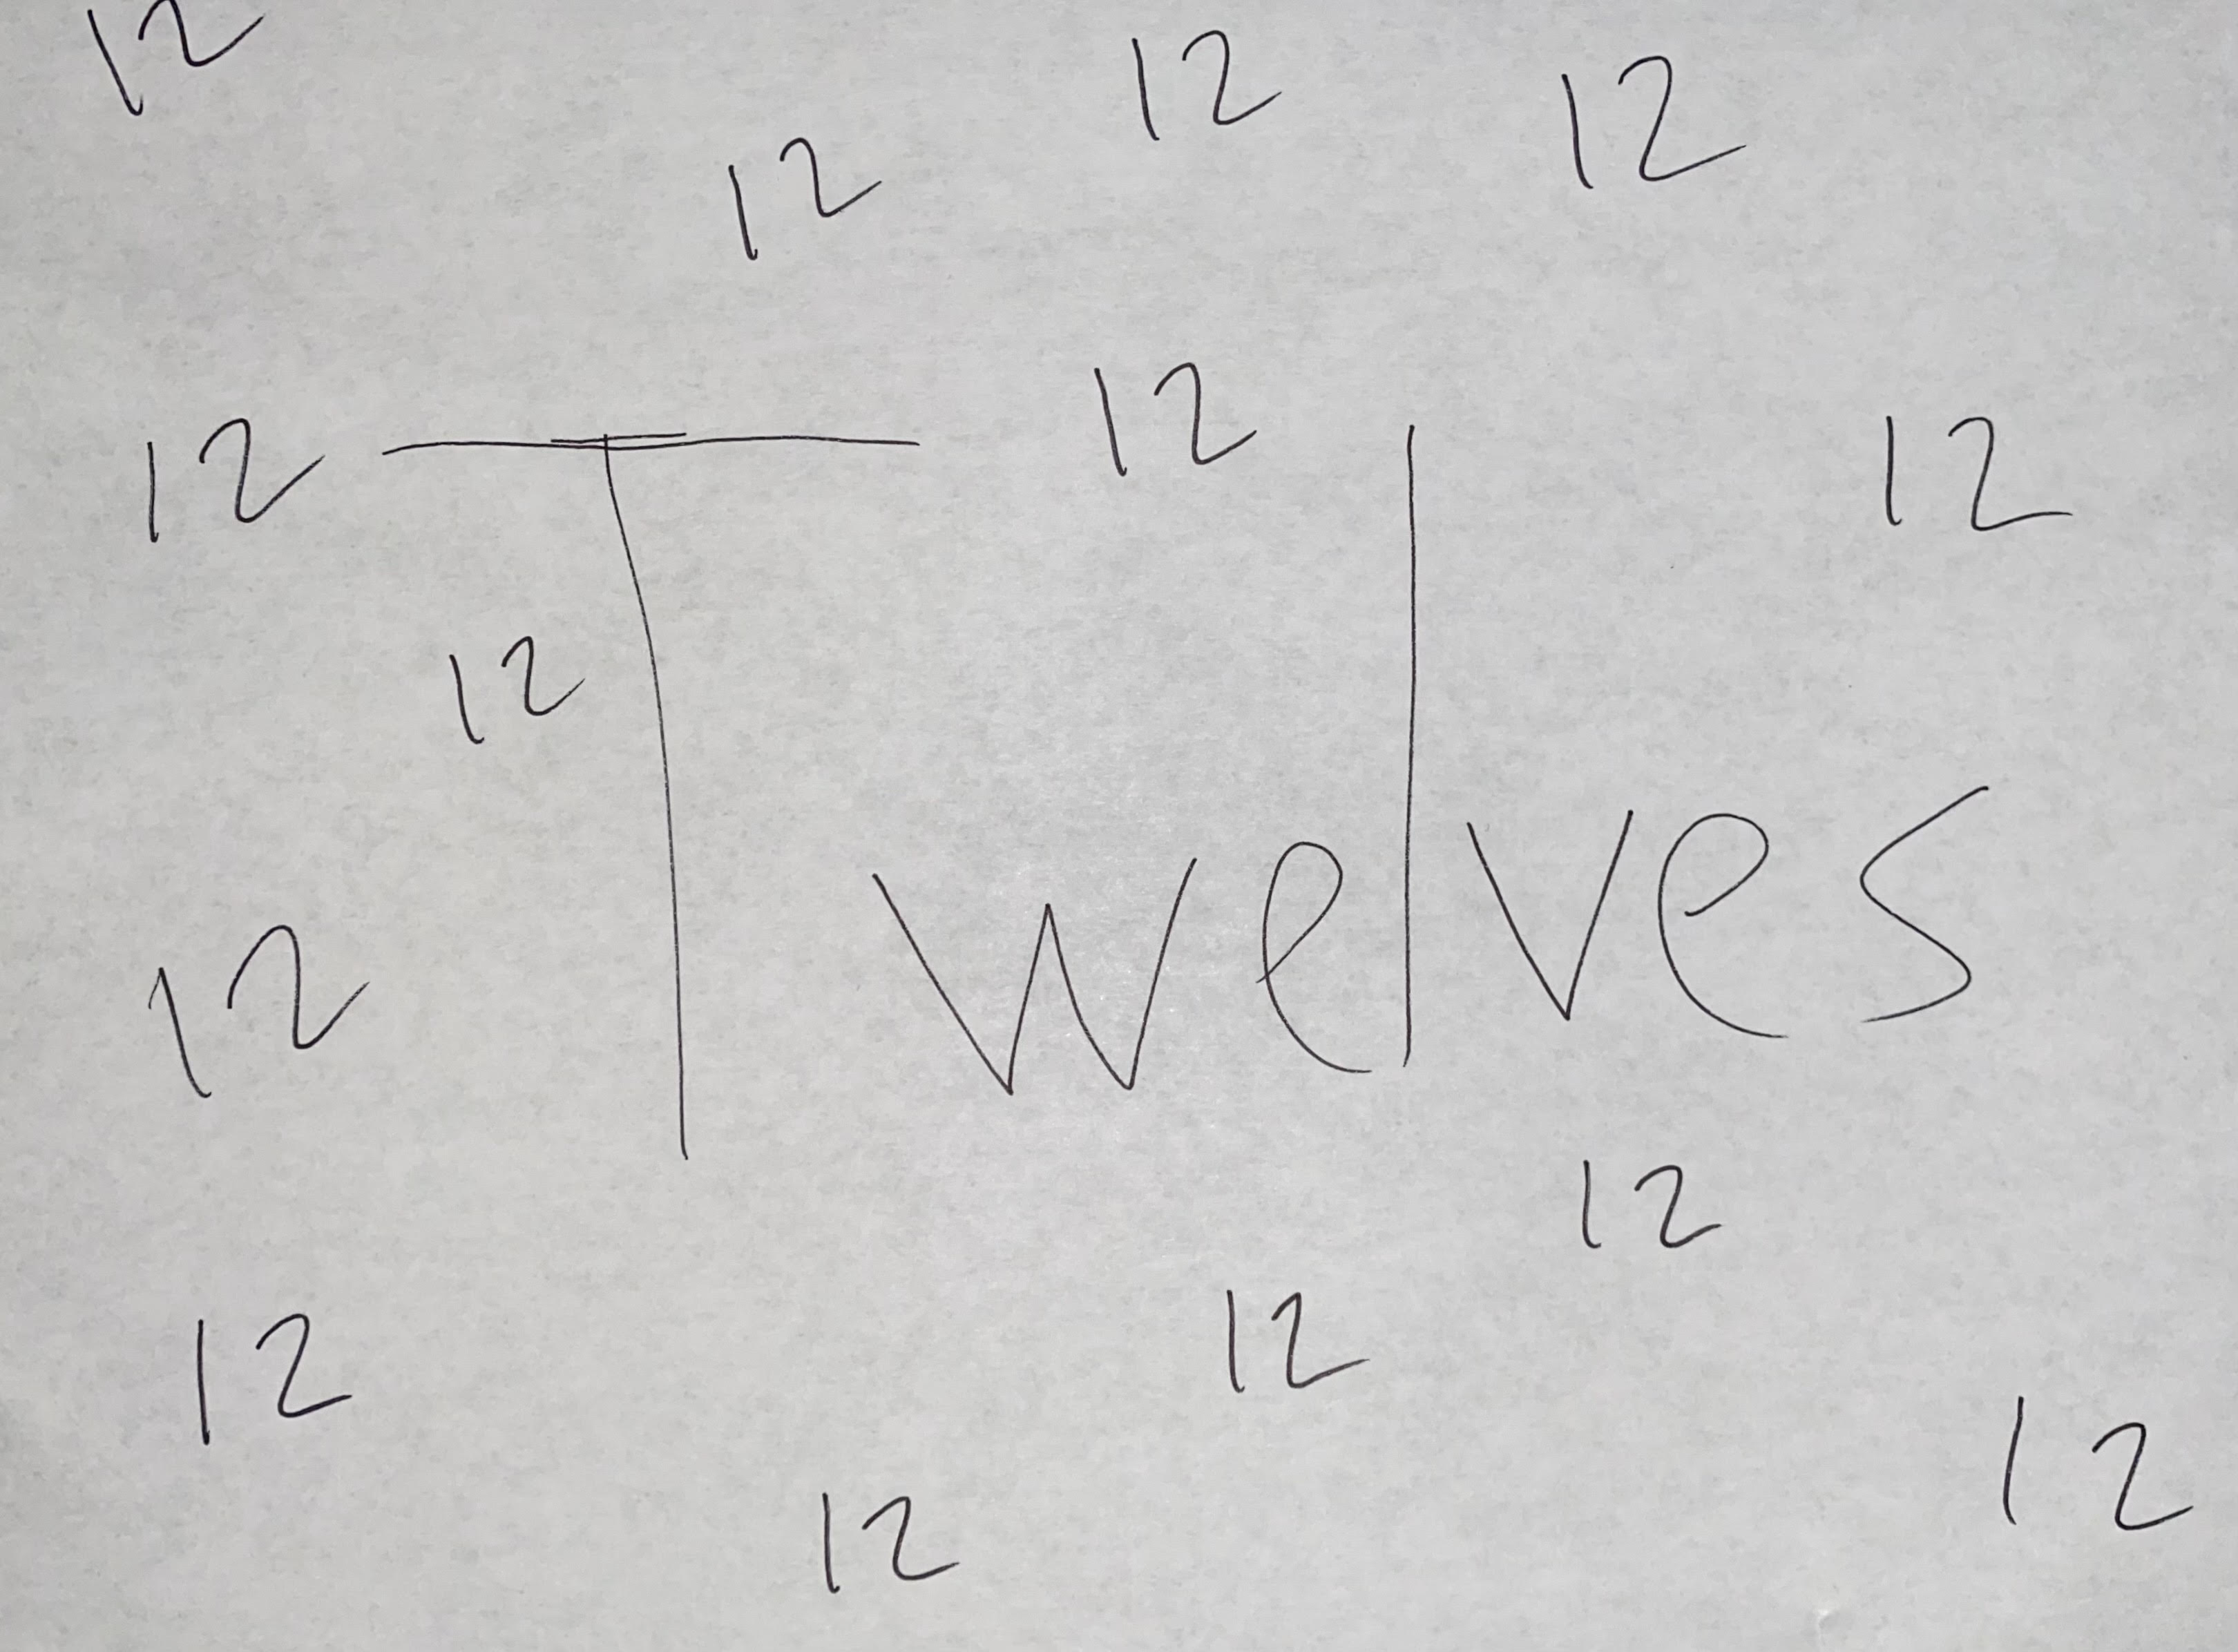 12
12
12
12
12
12
12
12
Twelves
12
12
12
12
12
12